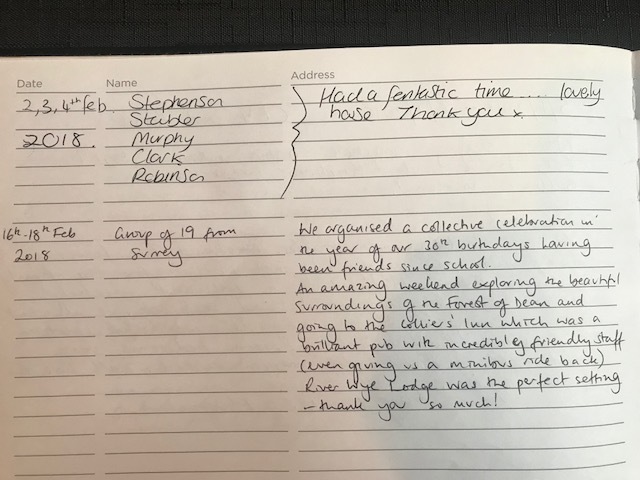 Date Name Address
2,3,4th feb. Stephenson Had a fentastic time ... lovely
Staibler house Thank you x
2018. Murphy
Clark
Robinson
16th-18th Feb Group of 19 from We organised a collective celebration in
2018 Surrey the year of our 30th birthdays having
been friends since school.
An amazing weekend exploring the beautiful
surroundings of the Forest of Dean and
going to the Colliers' Inn which was a
brilliant pub with incredibly friendly staff
(even giving us a minibus ride back)
River Wye Lodge was the perfect setting
- thank you so much!